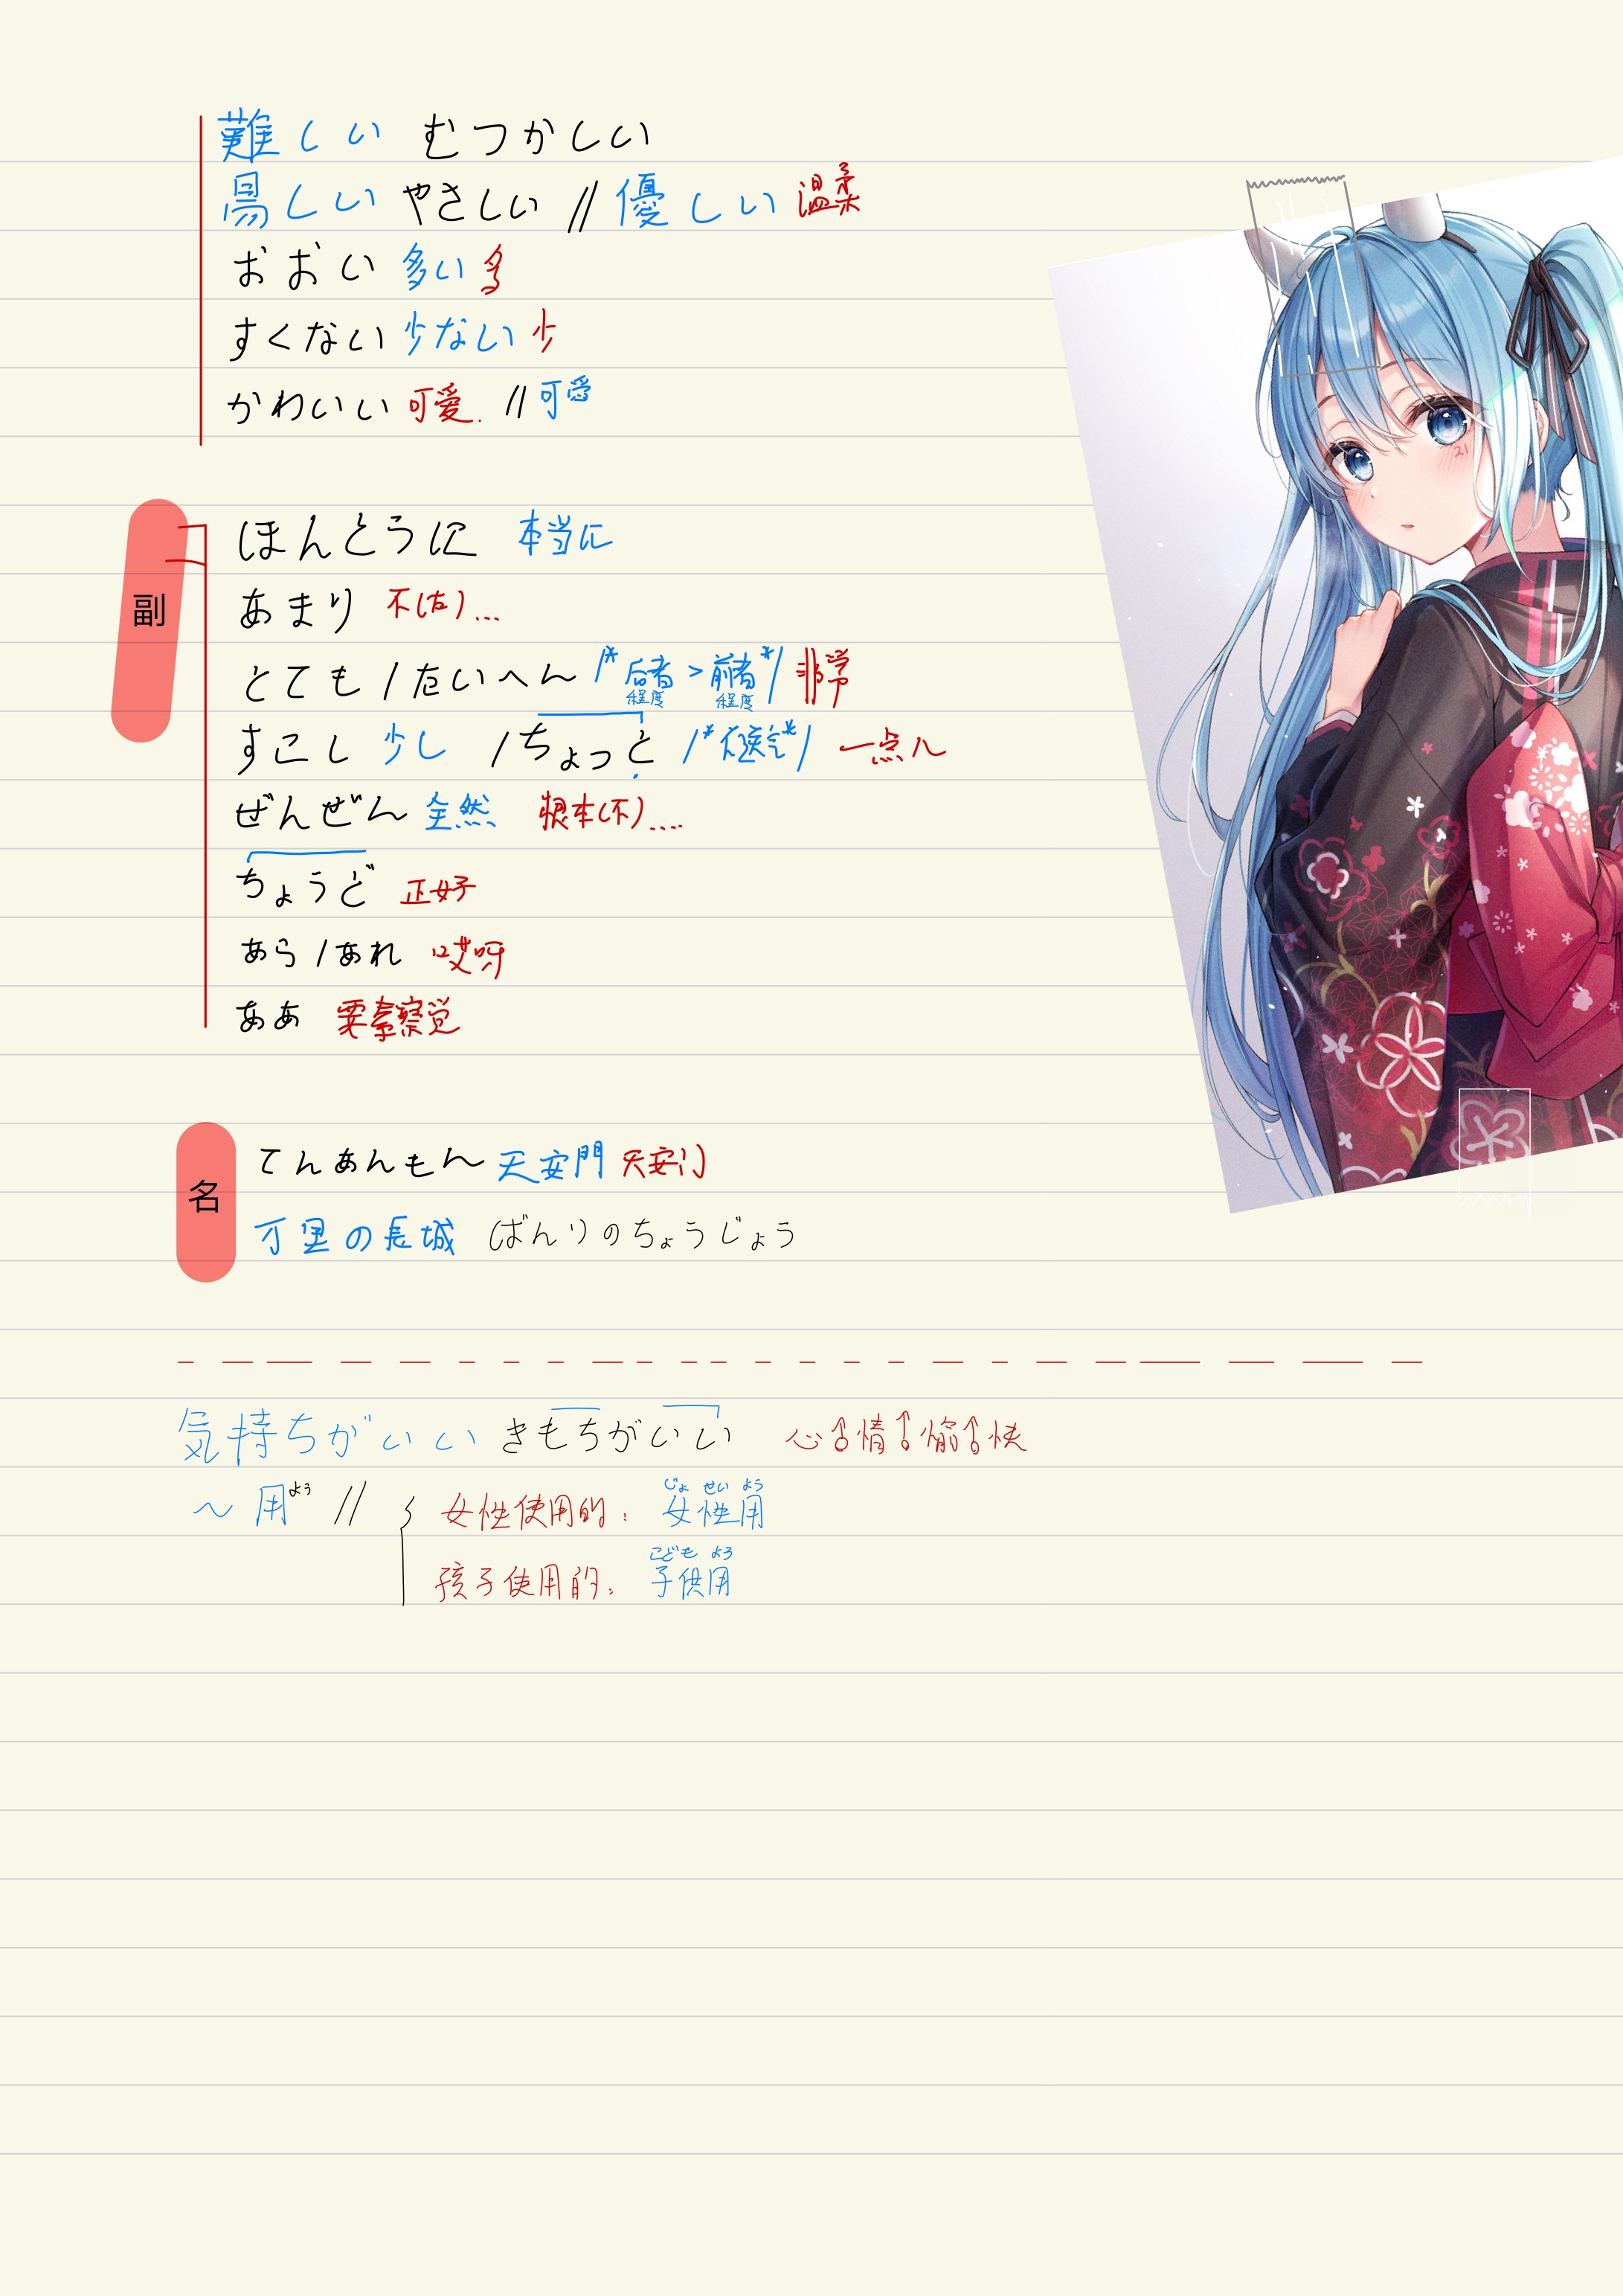 難しい むつかしい
易しい やさしい // 優しい 温柔
おおい 多い 多
すくない 少ない 少
かわいい 可爱. // 可愛
副
ほんとうに 本当に
あまり 不(太)...
とても / たいへん /*后者>前者*/ 非常
程度 程度
すこし 少し / ちょっと 一点儿
ぜんぜん 全然 根本(不)....
ちょうど 正好
あら / あれ 哎呀
ああ
名
てんあんもん 天安門 天安门
万里の長城 ばんりのちょうじょう
気持ちがいい きもちがいい 心情愉快
~用よう // { 女性使用的: 女性用 じょ せい よう
孩子使用的: 子供用 こども よう